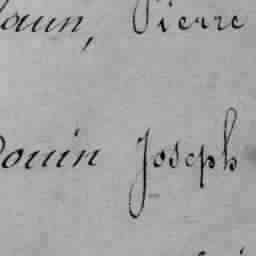 Pierre
ouin Joseph